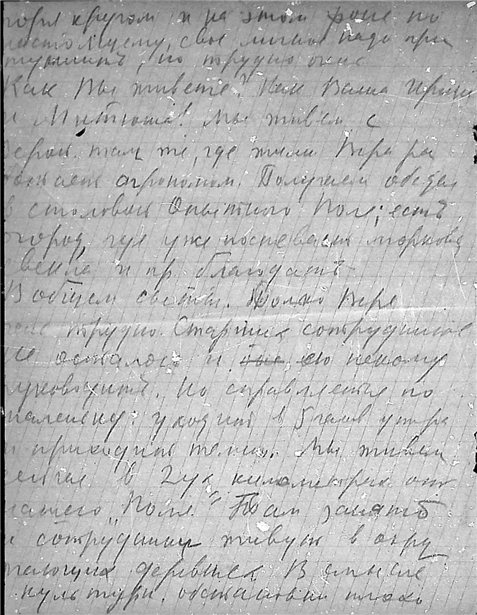 горя кругом и на этом фоне по
настоящему, свое личное надо при
тушить, но трудно очень
Как Вы живете? Как Ваша Ирина
и Митюша! Мы живем с
Верой там же, где жили Вера ра
ботает агрономом. Получаем обеды
в столовой Опытного Поля; есть
огород, где уже поспевает морковь
свекла и пр благодать
В общем сыты. Только Вере
очень трудно. Старших сотрудников
не осталось и ею некому
руководить. Но справляется по
маленьку: уходит в 5 часов утра
и приходит темно. Мы живем
сейчас в 2ух километрах от
нашего "Поля" Там занято
и сотрудники живут в окру
жающих деревнях В смысле
культурн. обстановки плохо